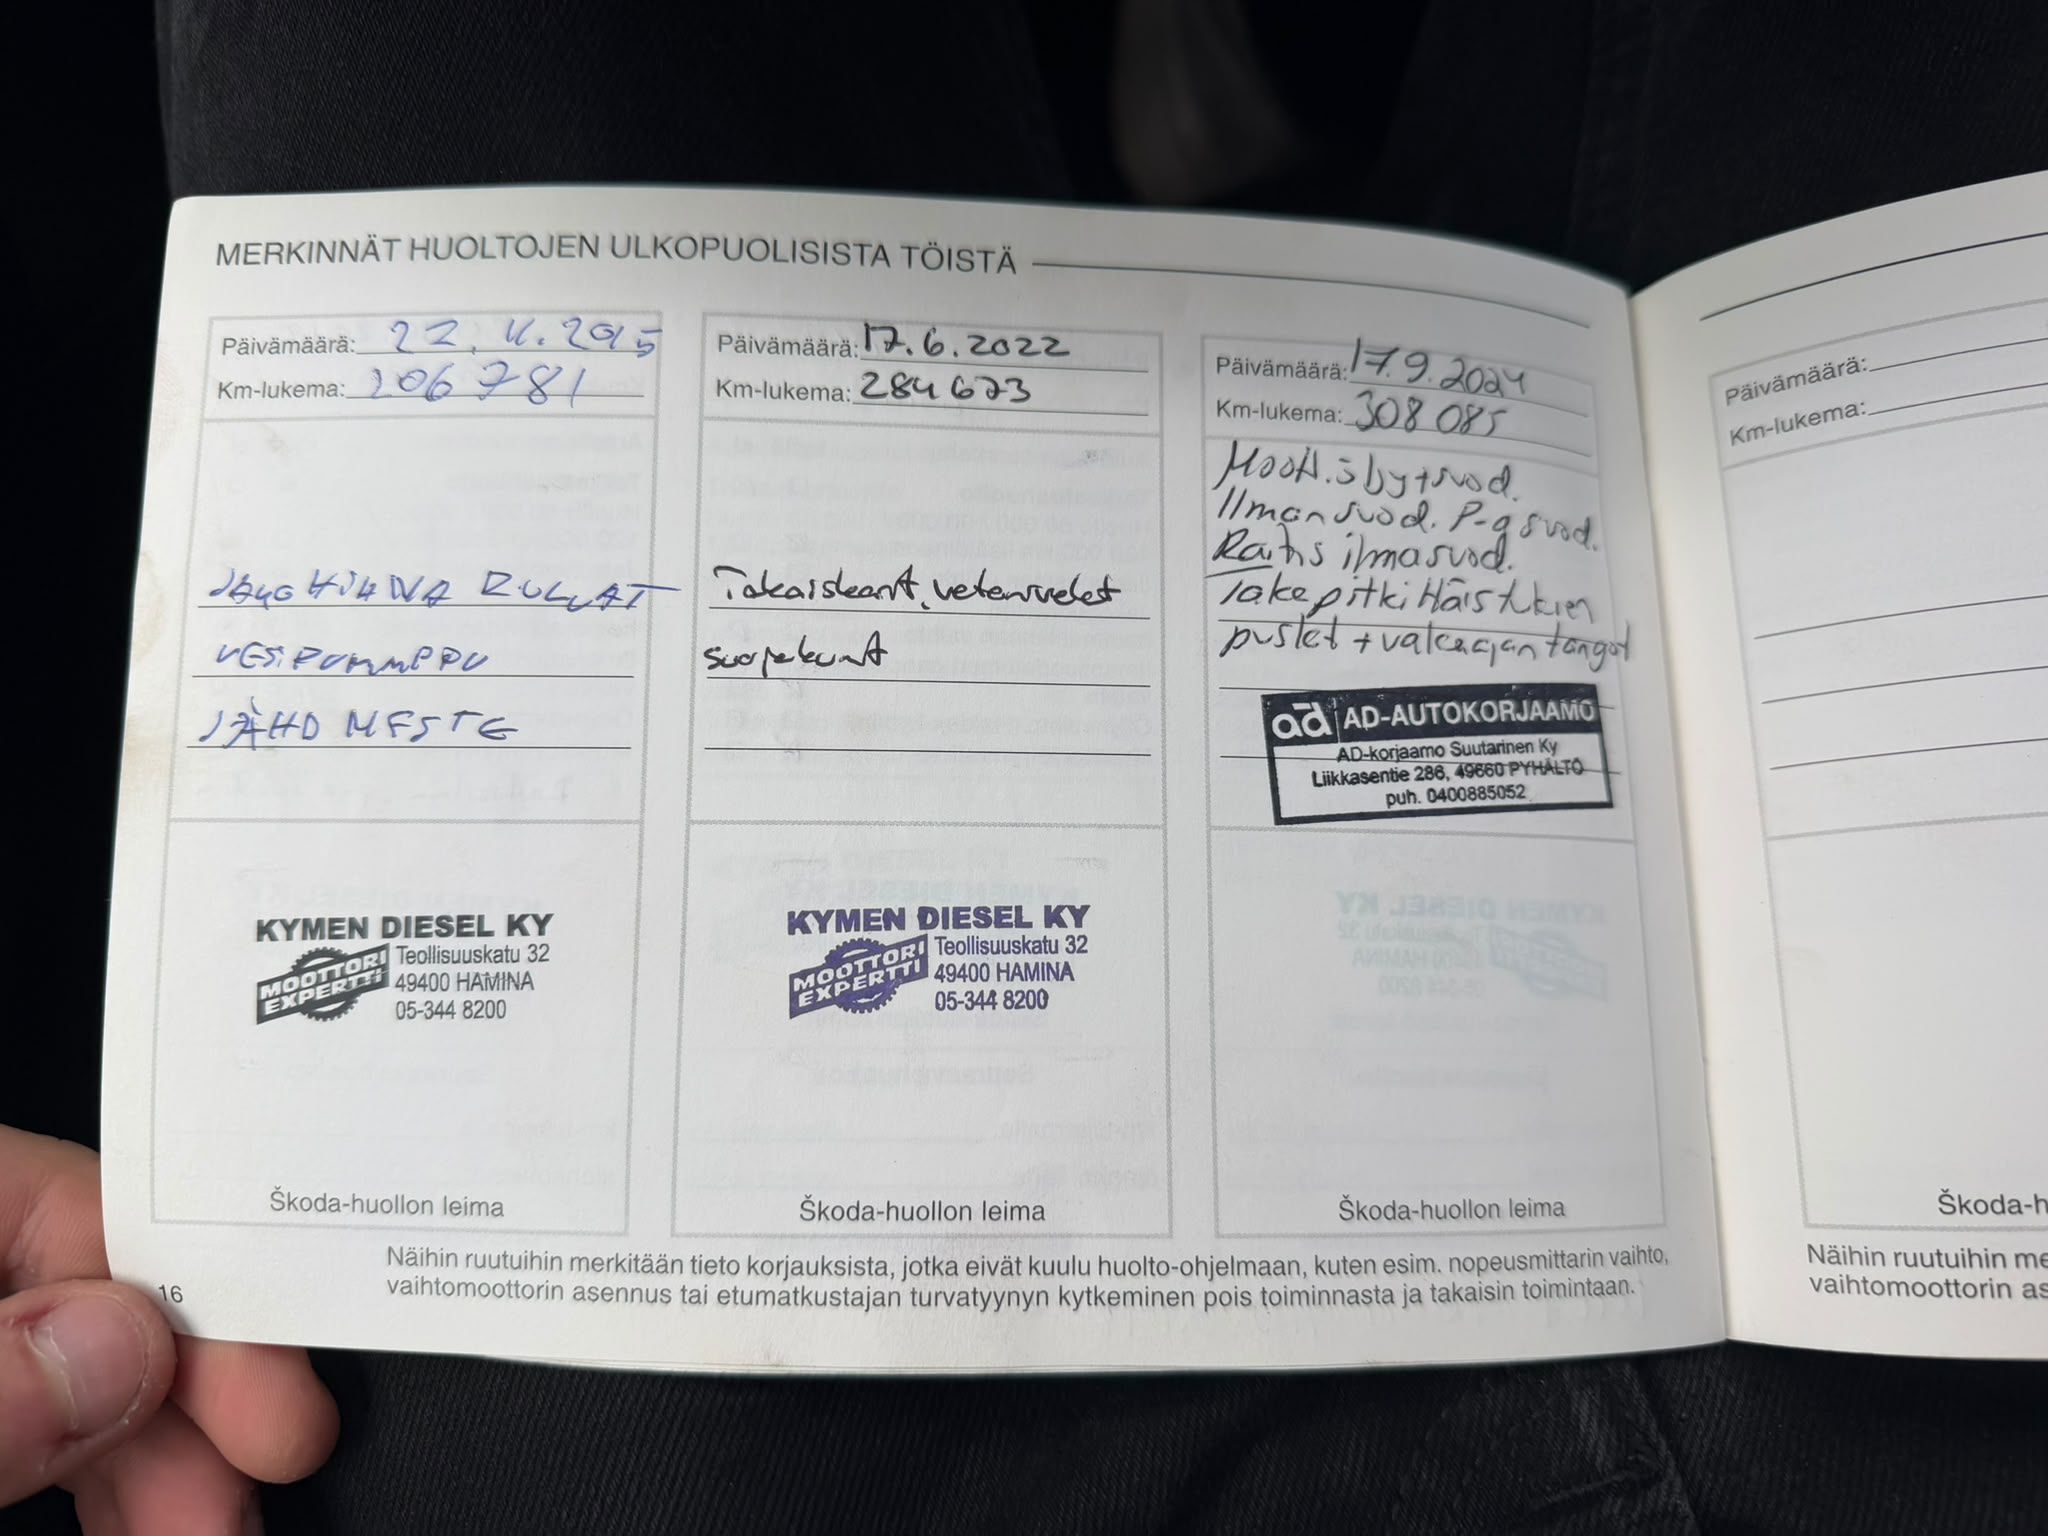 MERKINNÄT HUOLTOJEN ULKOPUOLISISTA TÖISTÄ
Päivämäärä: 22. 4. 2015
Km-lukema: 206781
JAKOHIHNA RULLAT
VESIPUMMPPU
JÄHD NESTE
KYMEN DIESEL KY
MOOTTORI
EXPERTTI
Teollisuuskatu 32
49400 HAMINA
05-344 8200
Škoda-huollon leima
Päivämäärä: 17.6.2022
Km-lukema: 284673
Takaiskant, vetonivelet
suojakumit
KYMEN DIESEL KY
MOOTTORI
EXPERTTI
Teollisuuskatu 32
49400 HAMINA
05-344 8200
Škoda-huollon leima
Päivämäärä: 17.9.2024
Km-lukema: 308085
Moott. öljy + suod.
Ilmansuod. P-a suod.
Raitis ilmasuod.
Taka pitkittäistukien
puslat + vakaajan tangot
ad AD-AUTOKORJAAMO
AD-korjaamo Suutarinen Ky
Liikkasentie 286, 49660 PYHÄLTÖ
puh. 0400885052
Škoda-huollon leima
Näihin ruutuihin merkitään tieto korjauksista, jotka eivät kuulu huolto-ohjelmaan, kuten esim. nopeusmittarin vaihto,
vaihtomoottorin asennus tai etumatkustajan turvatyynyn kytkeminen pois toiminnasta ja takaisin toimintaan.
16
Päivämäärä:
Km-lukema:
Škoda-h
Näihin ruutuihin me
vaihtomoottorin as